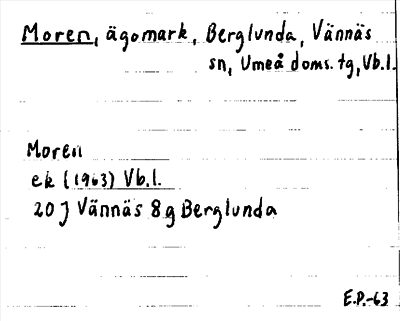 Moren, ägomark, Berglunda, Vännäs
sn, Umeå doms. tg, Vb.l.
Moren
ek (1963) Vb.l.
20 J Vännäs 8g Berglunda
E.P.-63